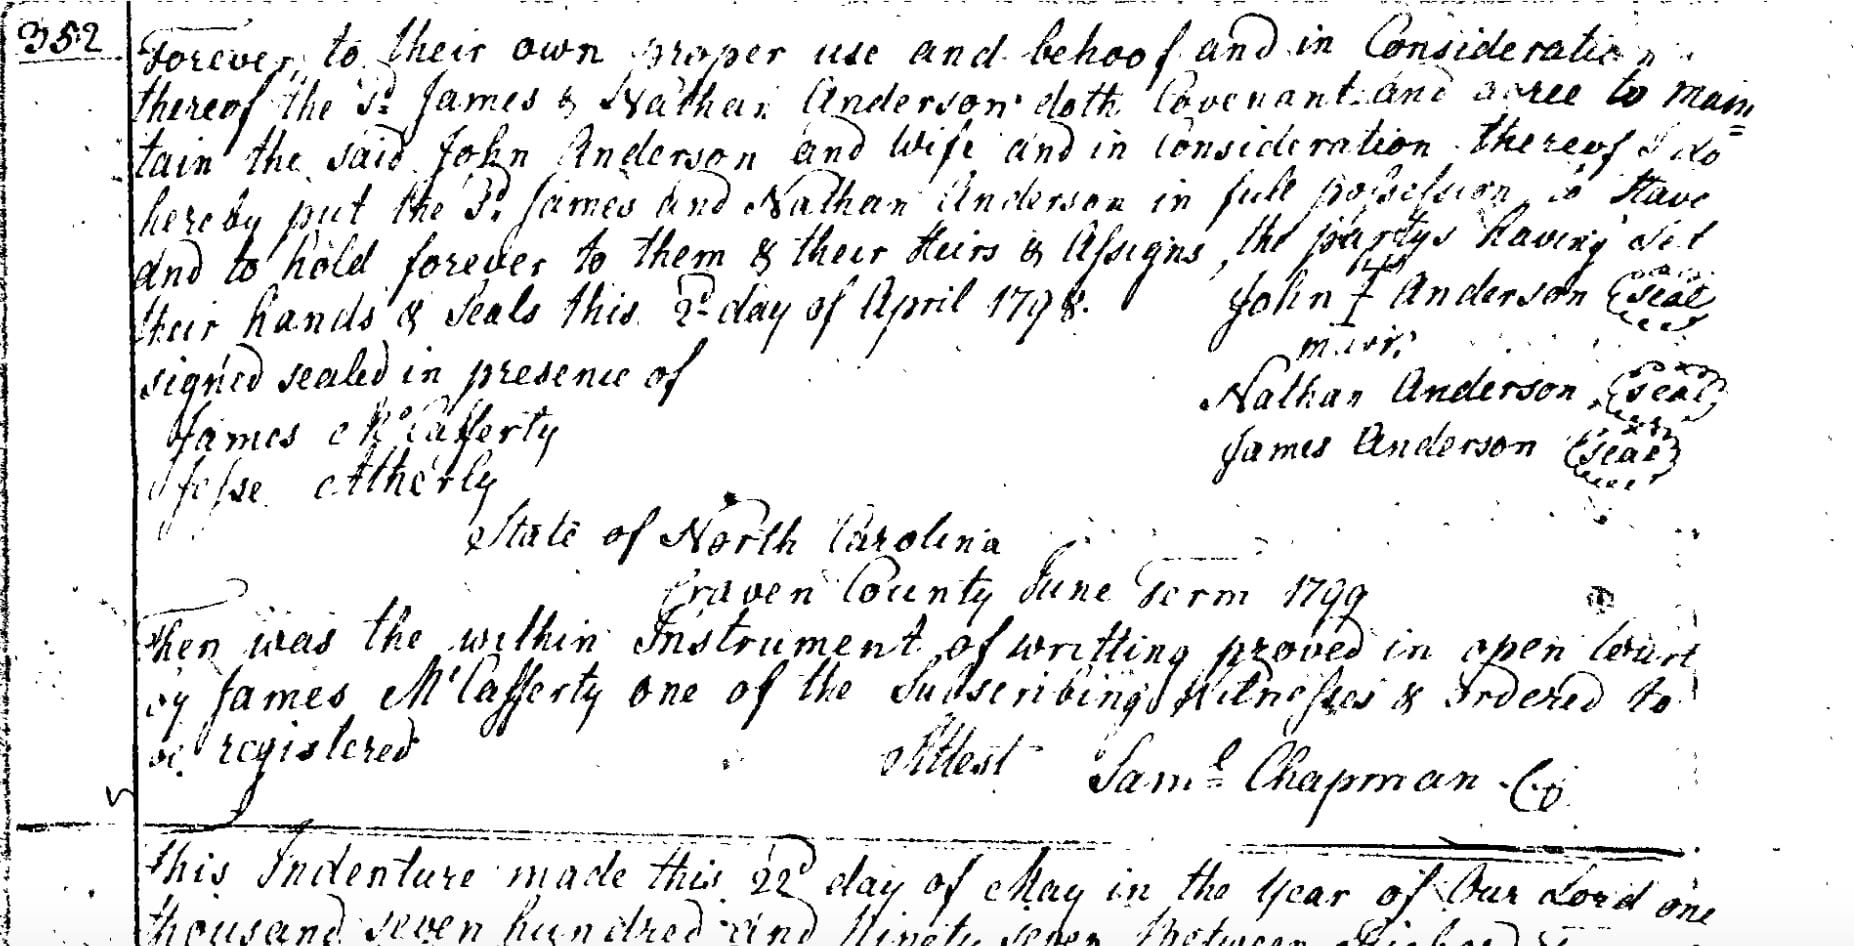 352
Forever, to their own proper use and behoof and in Consideration
thereof the sd. James & Nathan Anderson doth Covenant and agree to main=
tain the said John Anderson and Wife and in Consideration thereof I do
hereby put the Sd. James and Nathan Anderson in full possession to Have
and to hold forever to them & their Heirs & Assigns, the partys having set
their hands & Seals this 2d day of April 1798.
his
John I Anderson (seal)
mark
signed sealed in presence of
Nathan Anderson (seal)
James McCafferty
James Anderson (seal)
Jesse Atherly
State of North Carolina
Craven County June Term 1799
Then was the within Instrument of writting proved in open Court
by James McCafferty one of the Subscribing Witnesses & Ordered to
be registered
Attest Saml Chapman
This Indenture made this 22d day of May in the Year of Our Lord one
thousand seven hundred and Ninety seven Between